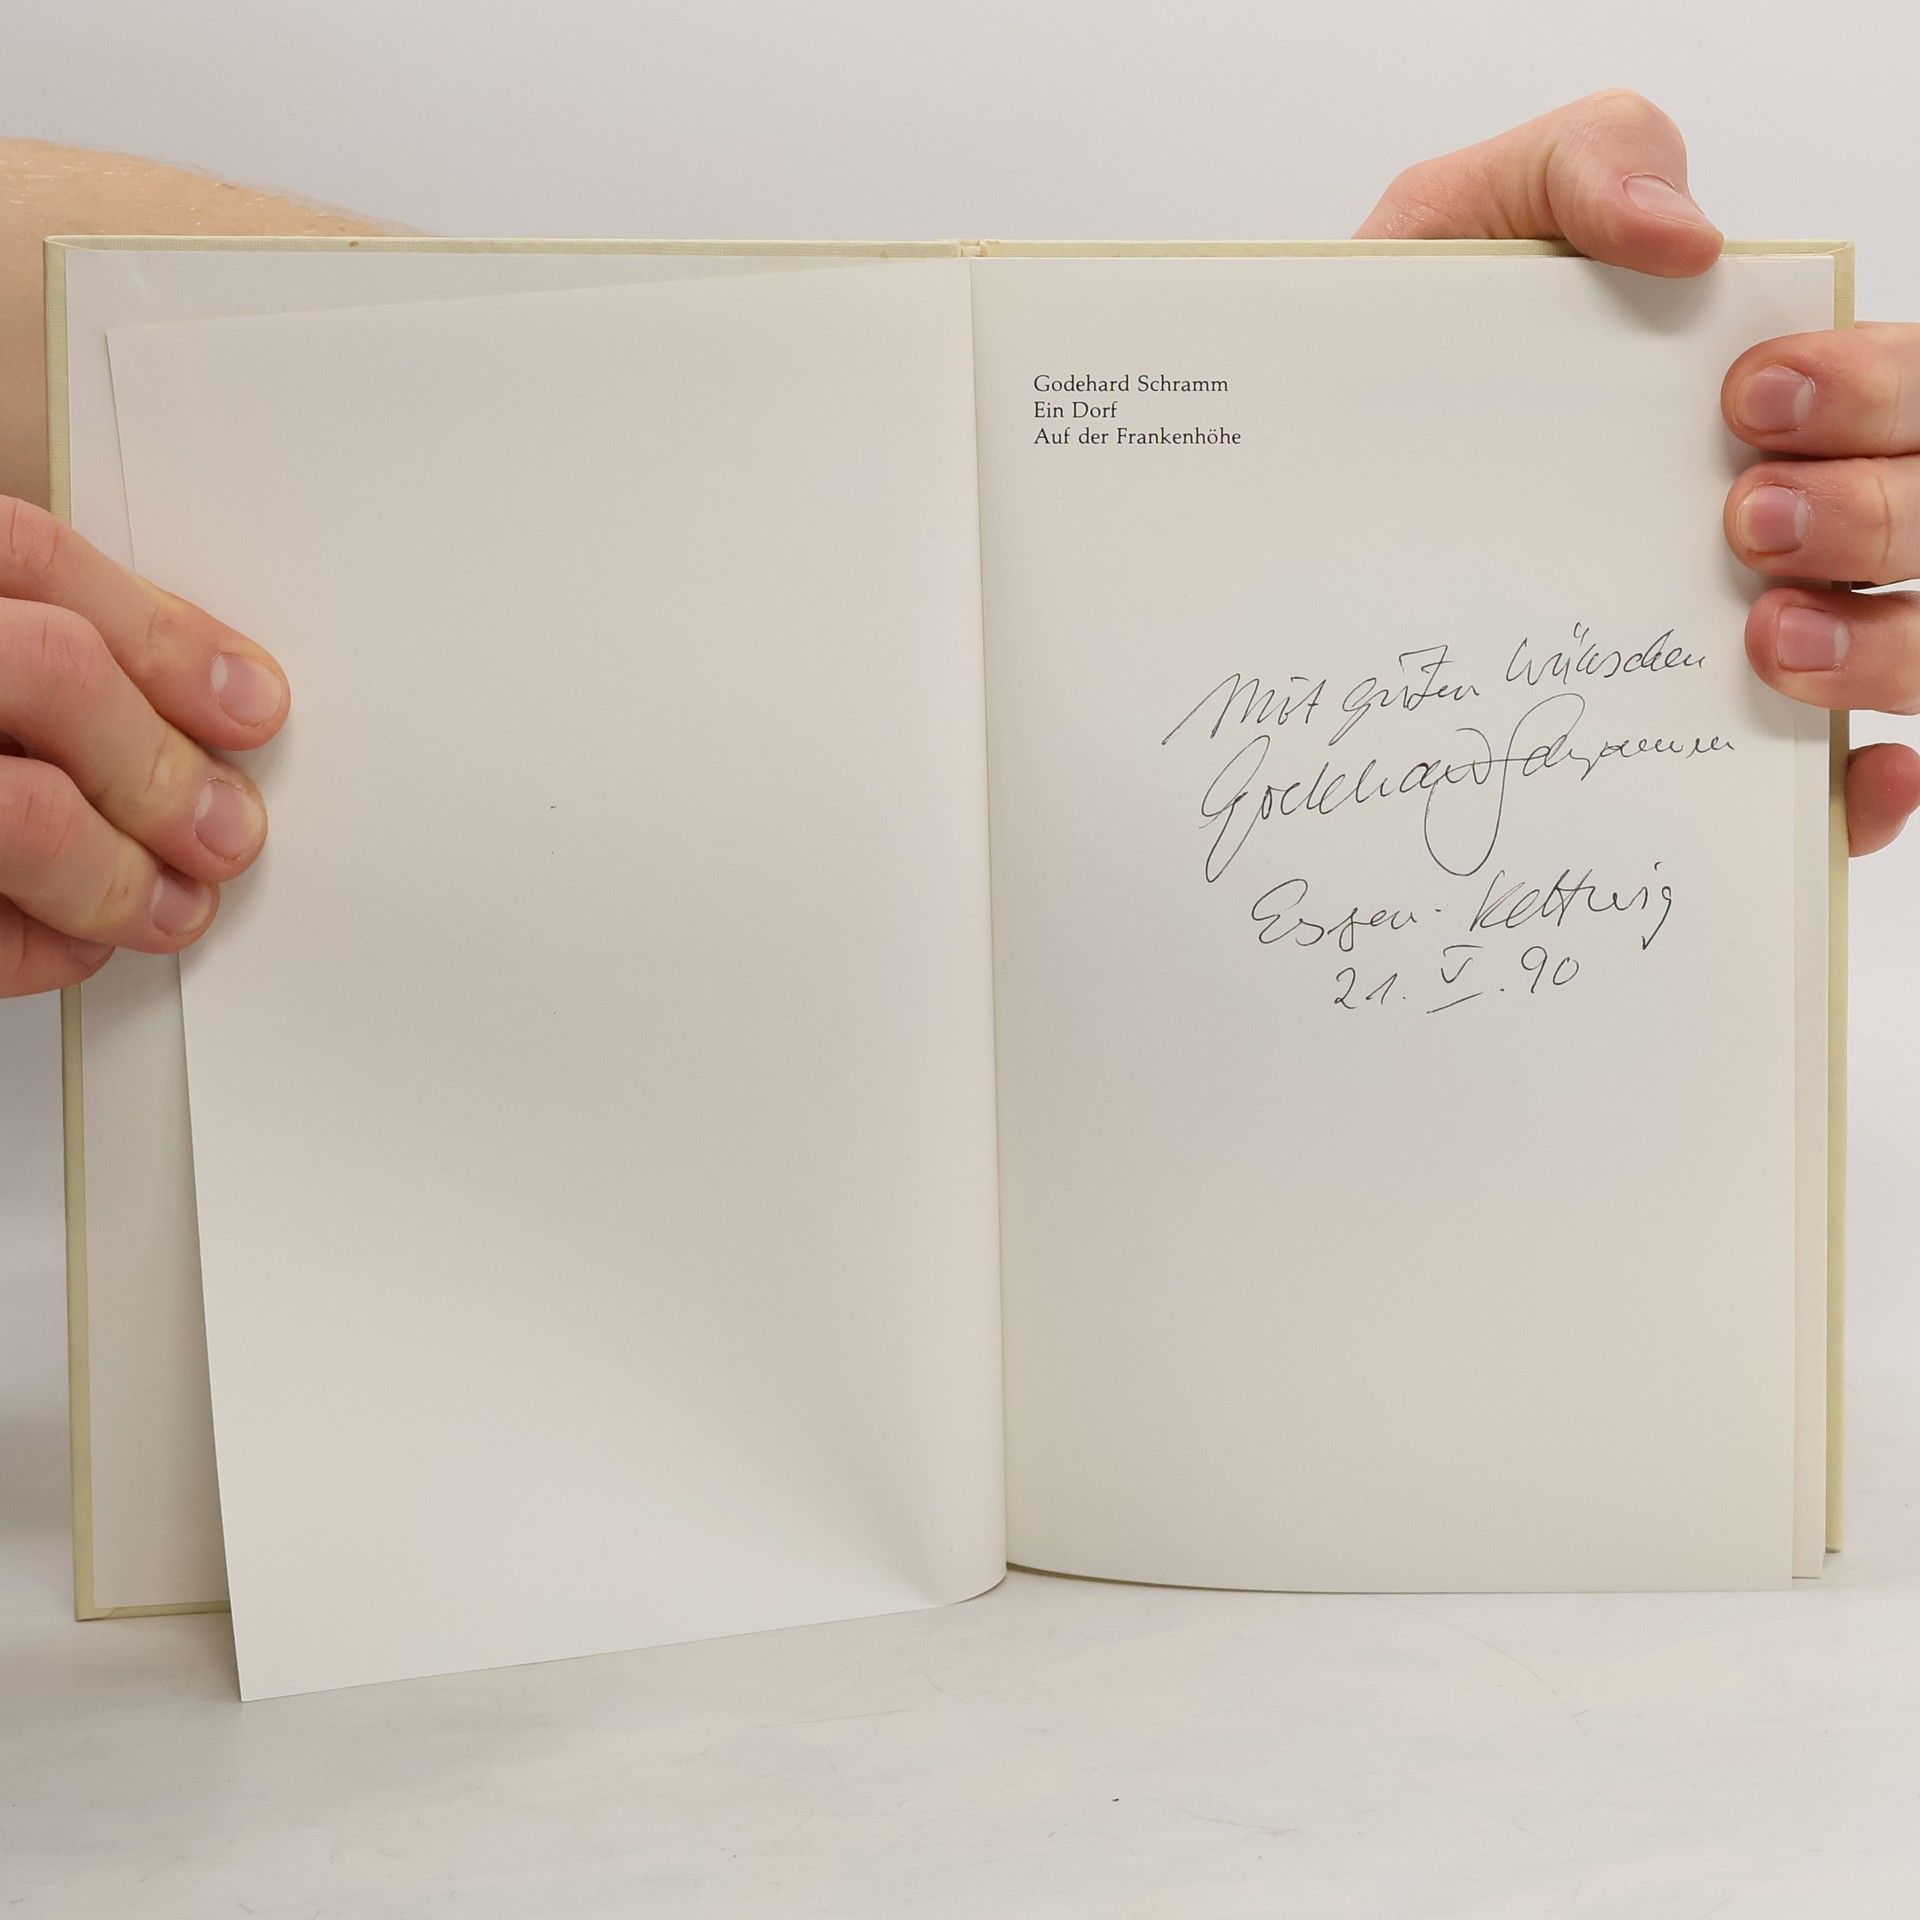 Godehard Schramm
Ein Dorf
Auf der Frankenhöhe
Mit guten Wünschen
Godehard Schramm
Essen-Kettwig
21. V. 90